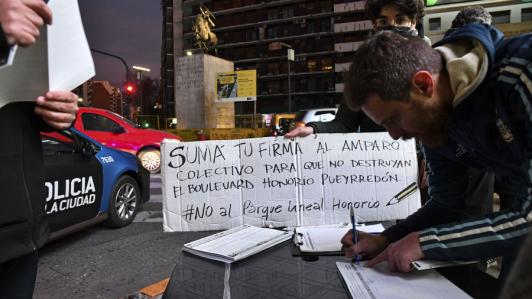 SUMA TU FIRMA AL AMPARO
COLECTIVO PARA QUE NO DESTRUYAN
EL BOULEVARD HONORIO PUEYRREDÓN.
#NO al Parque Lineal Honorio
POLICÍA
DE LA CIUDAD